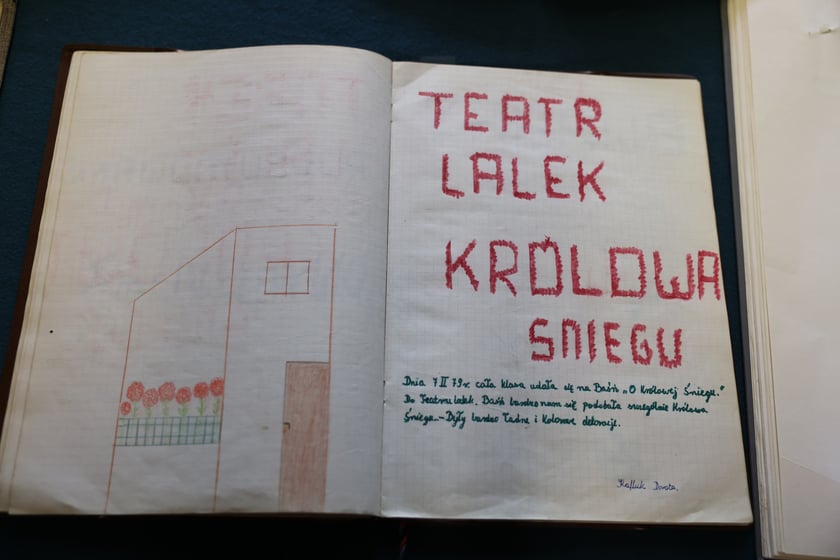 TEATR
LALEK
KRÓLOWA
SNIEGU
Dnia 7 II 79r. cała klasa udała się na Baśń „O Królowej Śniegu."
Do Teatru Lalek. Baśń bardzo nam się podobała szczególnie Królowa
Śniegu. - Były bardzo ładne i kolorowe dekoracje.
Dorota.